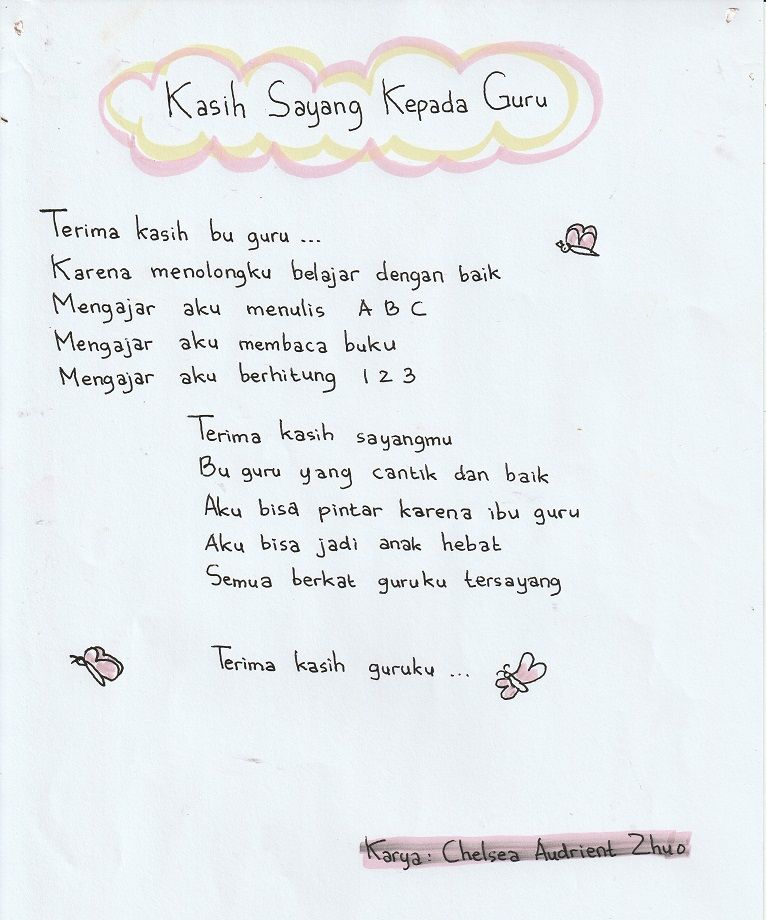 Kasih Sayang Kepada Guru
Terima kasih bu guru ...
Karena menolongku belajar dengan baik
Mengajar aku menulis A B C
Mengajar aku membaca buku
Mengajar aku berhitung 1 2 3
Terima kasih sayangmu
Bu guru yang cantik dan baik
Aku bisa pintar karena ibu guru
Aku bisa jadi anak hebat
Semua berkat guruku tersayang
Terima kasih guruku ...
Karya: Chelsea Audrient Zhuo